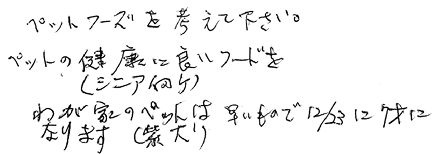 ペットフーズを考えて下さい。
ペットの健康に良いフードを
(シニア向ケ)
わが家のペットは早いもので12/23に7才に
なります(柴犬)